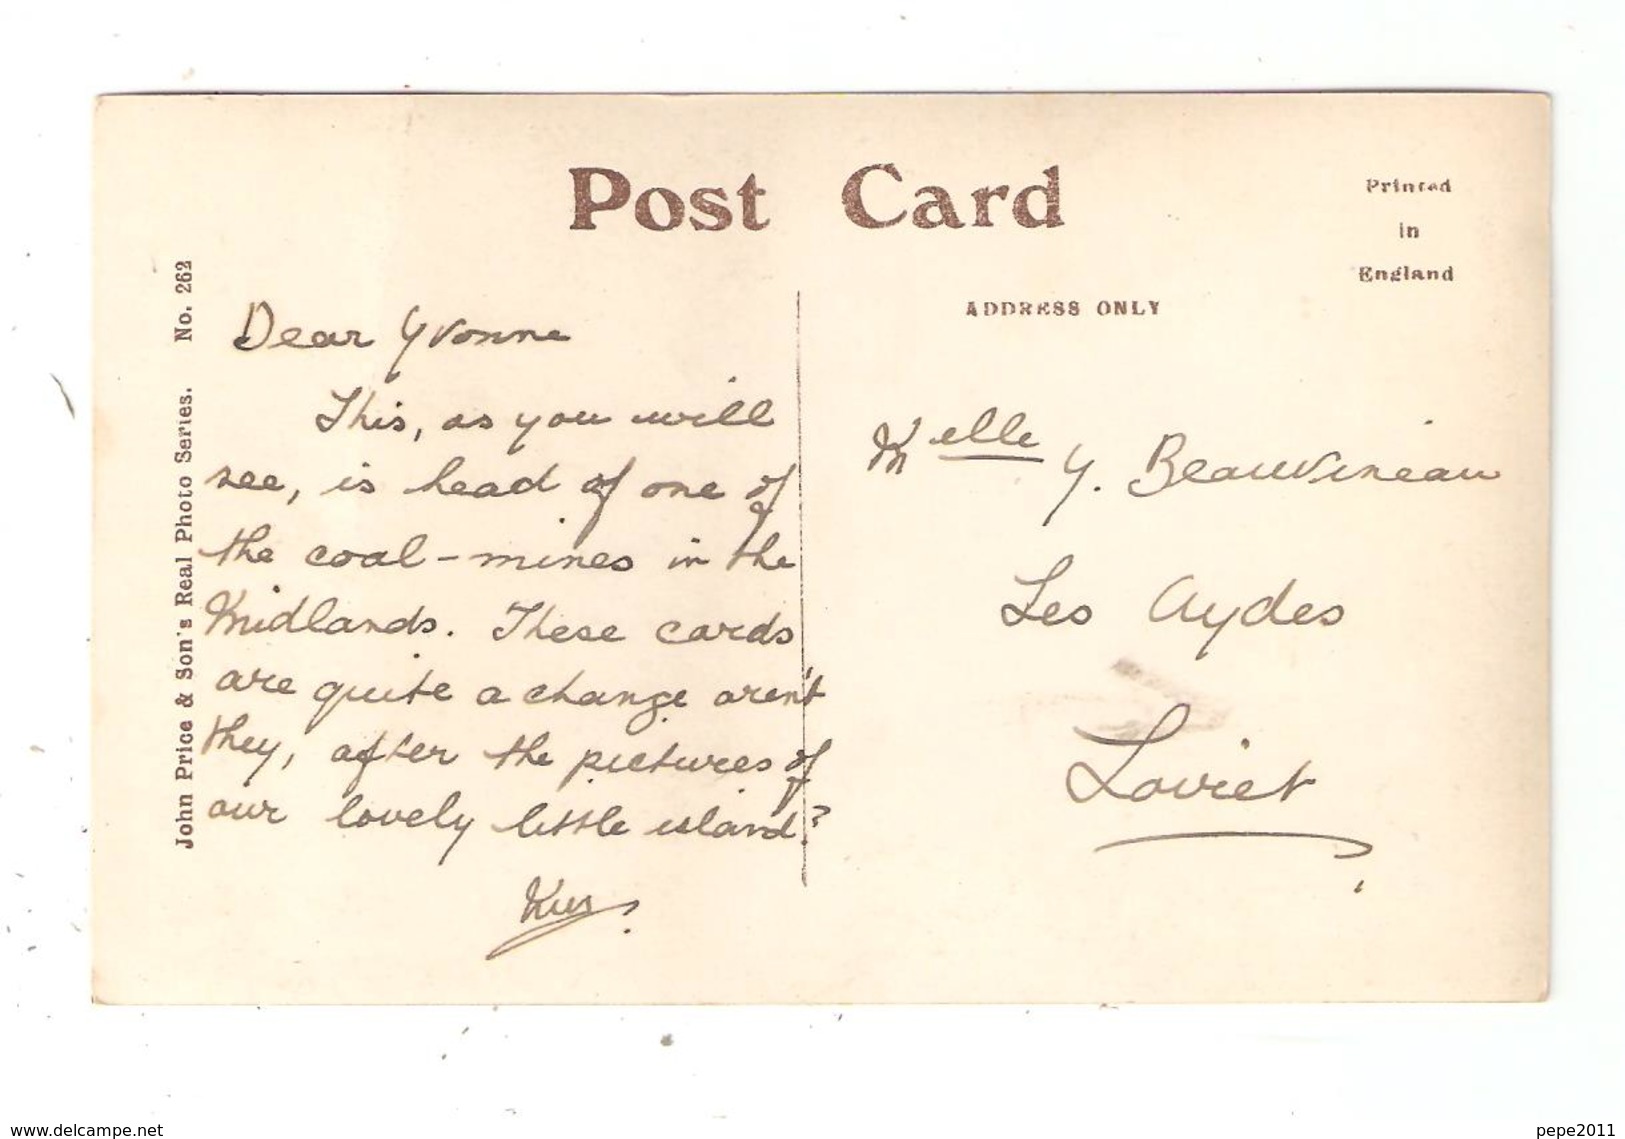 Post Card
Printed
in
England
ADDRESS ONLY
John Price & Son's Real Photo Series. No. 262
Dear Yvonne
This, as you will
see, is head of one of
the coal-mines in the
Midlands. These cards
are quite a change aren't
they, after the pictures of
our lovely little island?
Melle Y. Beauvineau
Les Aydes
Loiret
www.delcampe.net
pepe2011